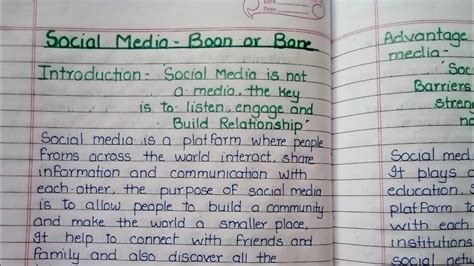 Date
Page
Social Media - Boon or Bane
Introduction - "Social Media is not
a media, the key
is to listen, engage and
Build Relationship"
Social media is a platform where people
froms across the world interact, share
information and communication with
each other, the purpose of social media
is to allow people to build a community
and make the world a smaller place,
It help to connect with friends and
family and also discover all the
Advantage
media -
"Soc
Barriers
stren
no
Social med
It plays a
education. S
platform t
with each
institutions
social netw